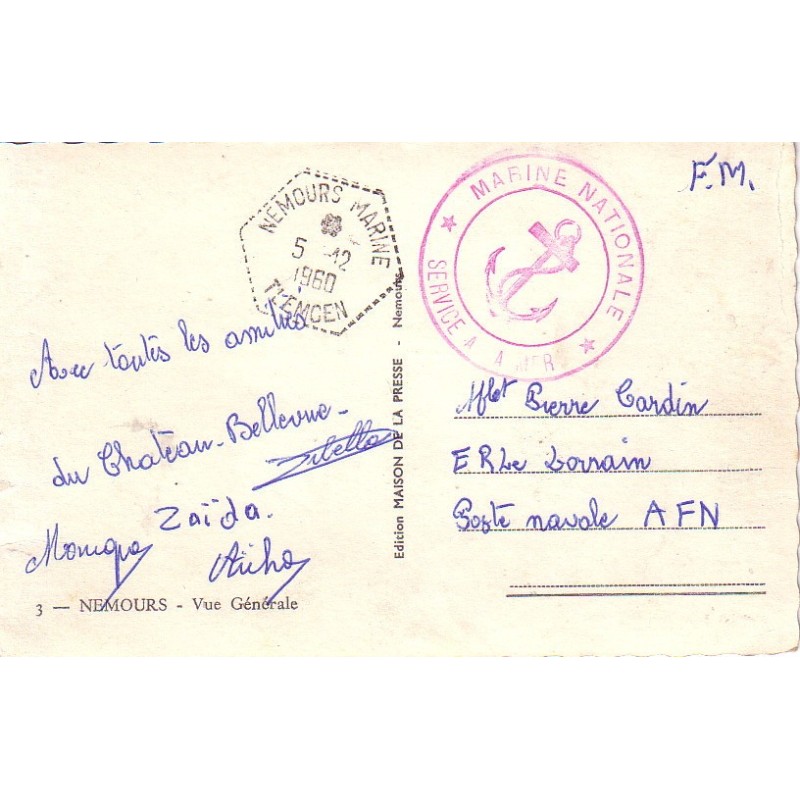 NEMOURS MARINE
5 -12
1960
TLEMCEN
★ MARINE NATIONALE ★
SERVICE A LA MER
F.M.
Avec toutes les amitiés
du Chateau-Bellevue-
Zaïda.
Monique
3 — NEMOURS - Vue Générale
Edition MAISON DE LA PRESSE - Nemours
Pierre Cardin
ER Le Lorrain
Poste navale AFN